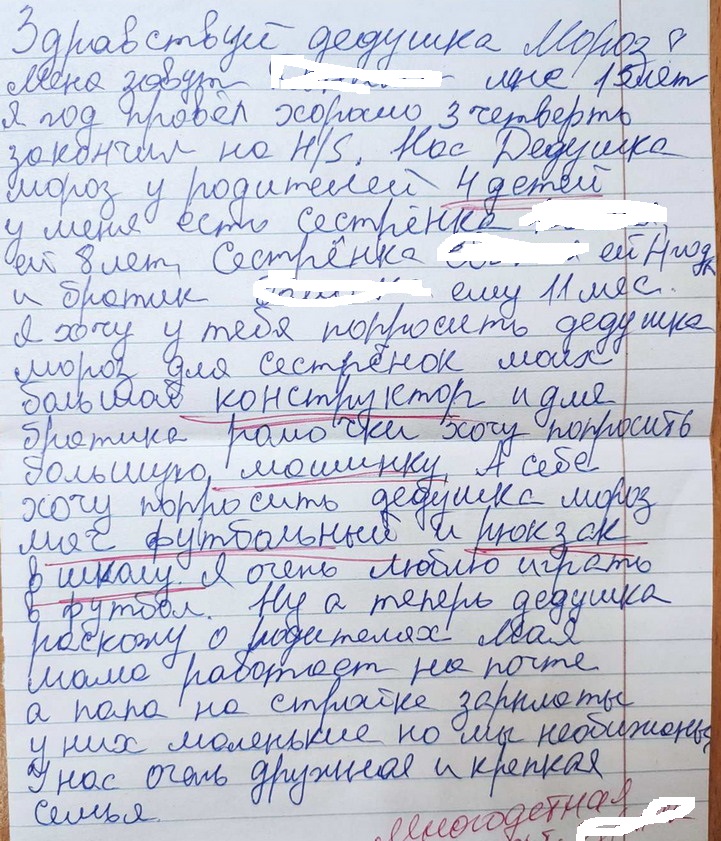 Здравствуй дедушка Мороз
Меня зовут мне 15 лет
я год провёл хорошо 3 четверть
закончил на 4/5. Нас Дедушка
мороз у родителей 4 детей
у меня есть сестрёнка
ей 8 лет, Сестрёнка ей 4 года
и братик ему 11 мес.
Я хочу у тебя попросить дедушка
мороз для сестрёнок моих
большой конструктор и для
братика хочу попросить
большую машинку А себе
хочу попросить дедушка мороз
мяч футбольный и рюкзак
в школу. Я очень люблю играть
в футбол. Ну а теперь дедушка
раскажу о родителях Моя
мама работает на почте
а папа на стройке зарплаты
у них маленькие но мы необижаны,
У нас очень дружная и крепкая
семья.
Многодетная